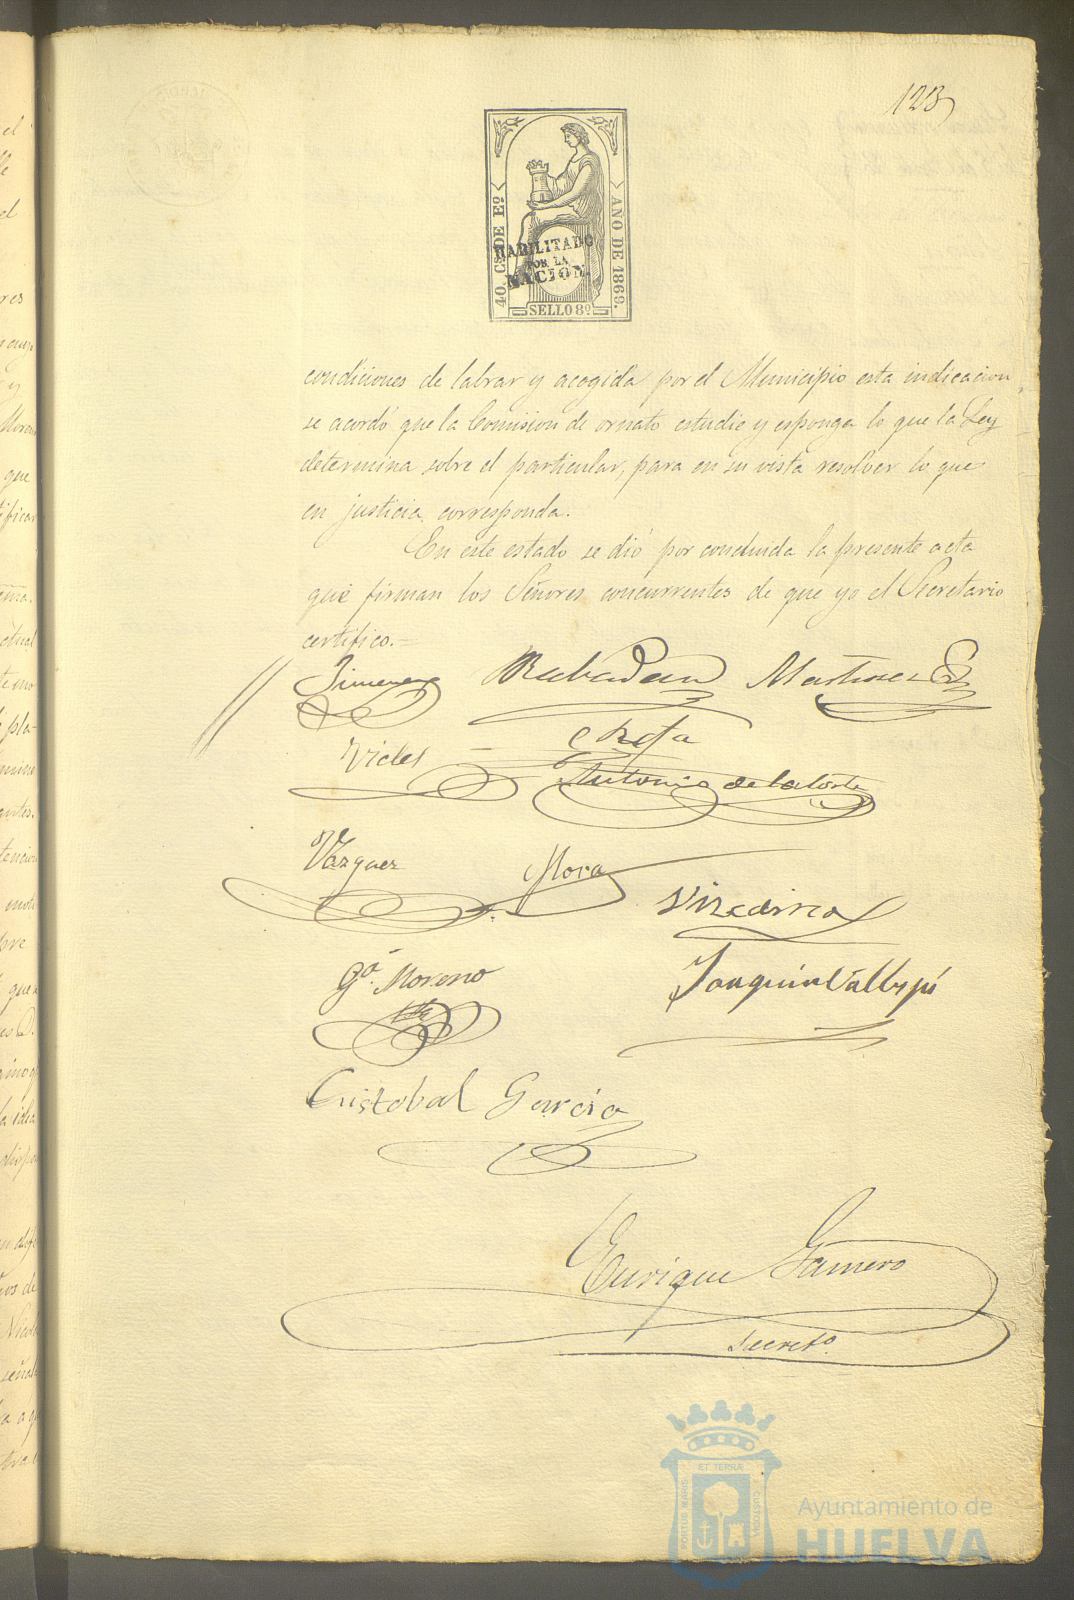 123
40. Cs. DE Eº.
AÑO DE 1869.
HABILITADO
POR LA
NACION.
SELLO 8º
condiciones de labrar y acogida por el Municipio esta indicacion
se acordó que la Comision de ornato estudie y esponga lo que la Ley
determina sobre el particular, para en su vista resolver lo que
en justicia corresponda.
En este estado se dió por concluida la presente acta
que firman los Señores concurrentes de que yo el Secretario
certifico.=
Jimenez Rabadan Martinez
Antonio de la Corte
Vazquez Mora
Gª. Moreno
Joaquin Vallejo
Cristobal Garcia
Enrique Gamero
Secretº.
ET TERRÆ
PORTUS MARIS
CUSTODIA
Ayuntamiento de
HUELVA